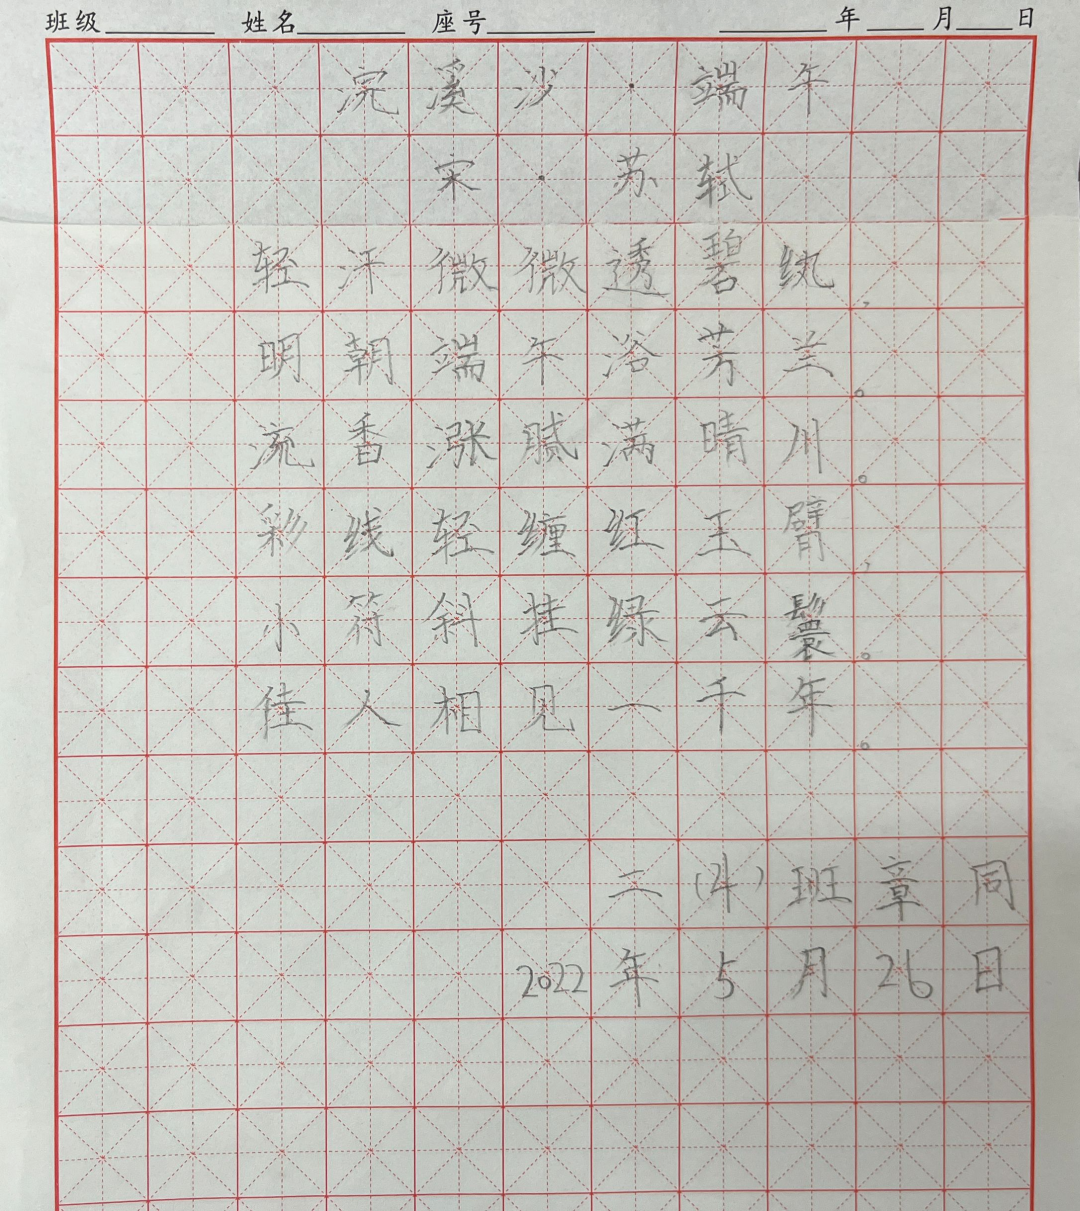 班级 姓名 座号 年 月 日
浣溪沙·端午
宋·苏轼
轻汗微微透碧纨,
明朝端午浴芳兰。
流香涨腻满晴川。
彩线轻缠红玉臂,
小符斜挂绿云鬟。
佳人相见一千年。
二(4)班章同
2022年5月26日